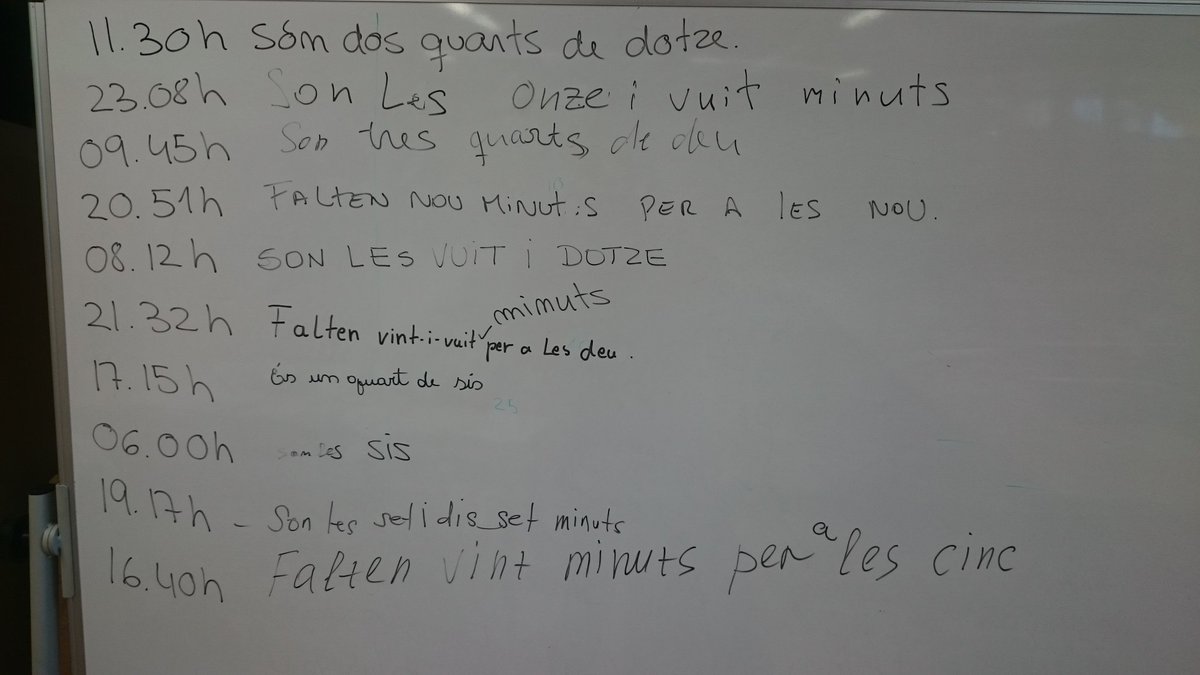 11.30h Són dos quarts de dotze.
23.08h Son Les Onze i vuit minuts
09.45h Son tres quarts de deu
20.51h FALTEN NOU MINUTS PER A les NOU.
08.12h SON LES VUIT i DOTZE
21.32h Falten vint-i-vuit minuts per a Les deu.
17.15h És un quart de sis
25
06.00h son Les sis
19.17h - Son les set i dis_set minuts
16.40h Falten vint minuts per a les cinc